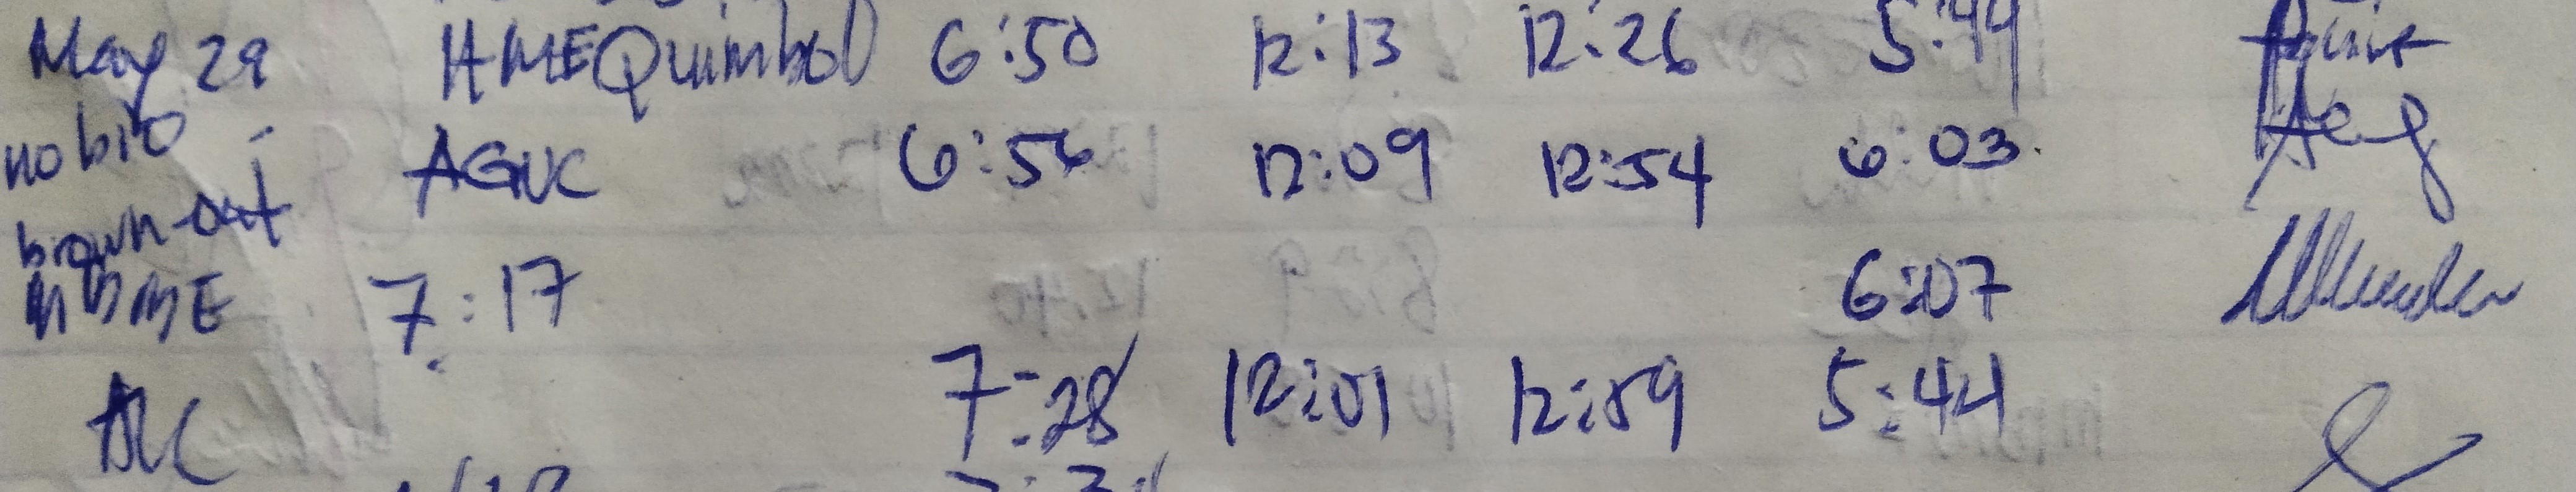 May 29 HMEQuimbol 6:50 12:13 12:26 5:44
no bio AGUC 6:56 12:09 12:54 6:03
brown-out
MBME 7:17 6:07
7:28 12:01 12:59 5:44